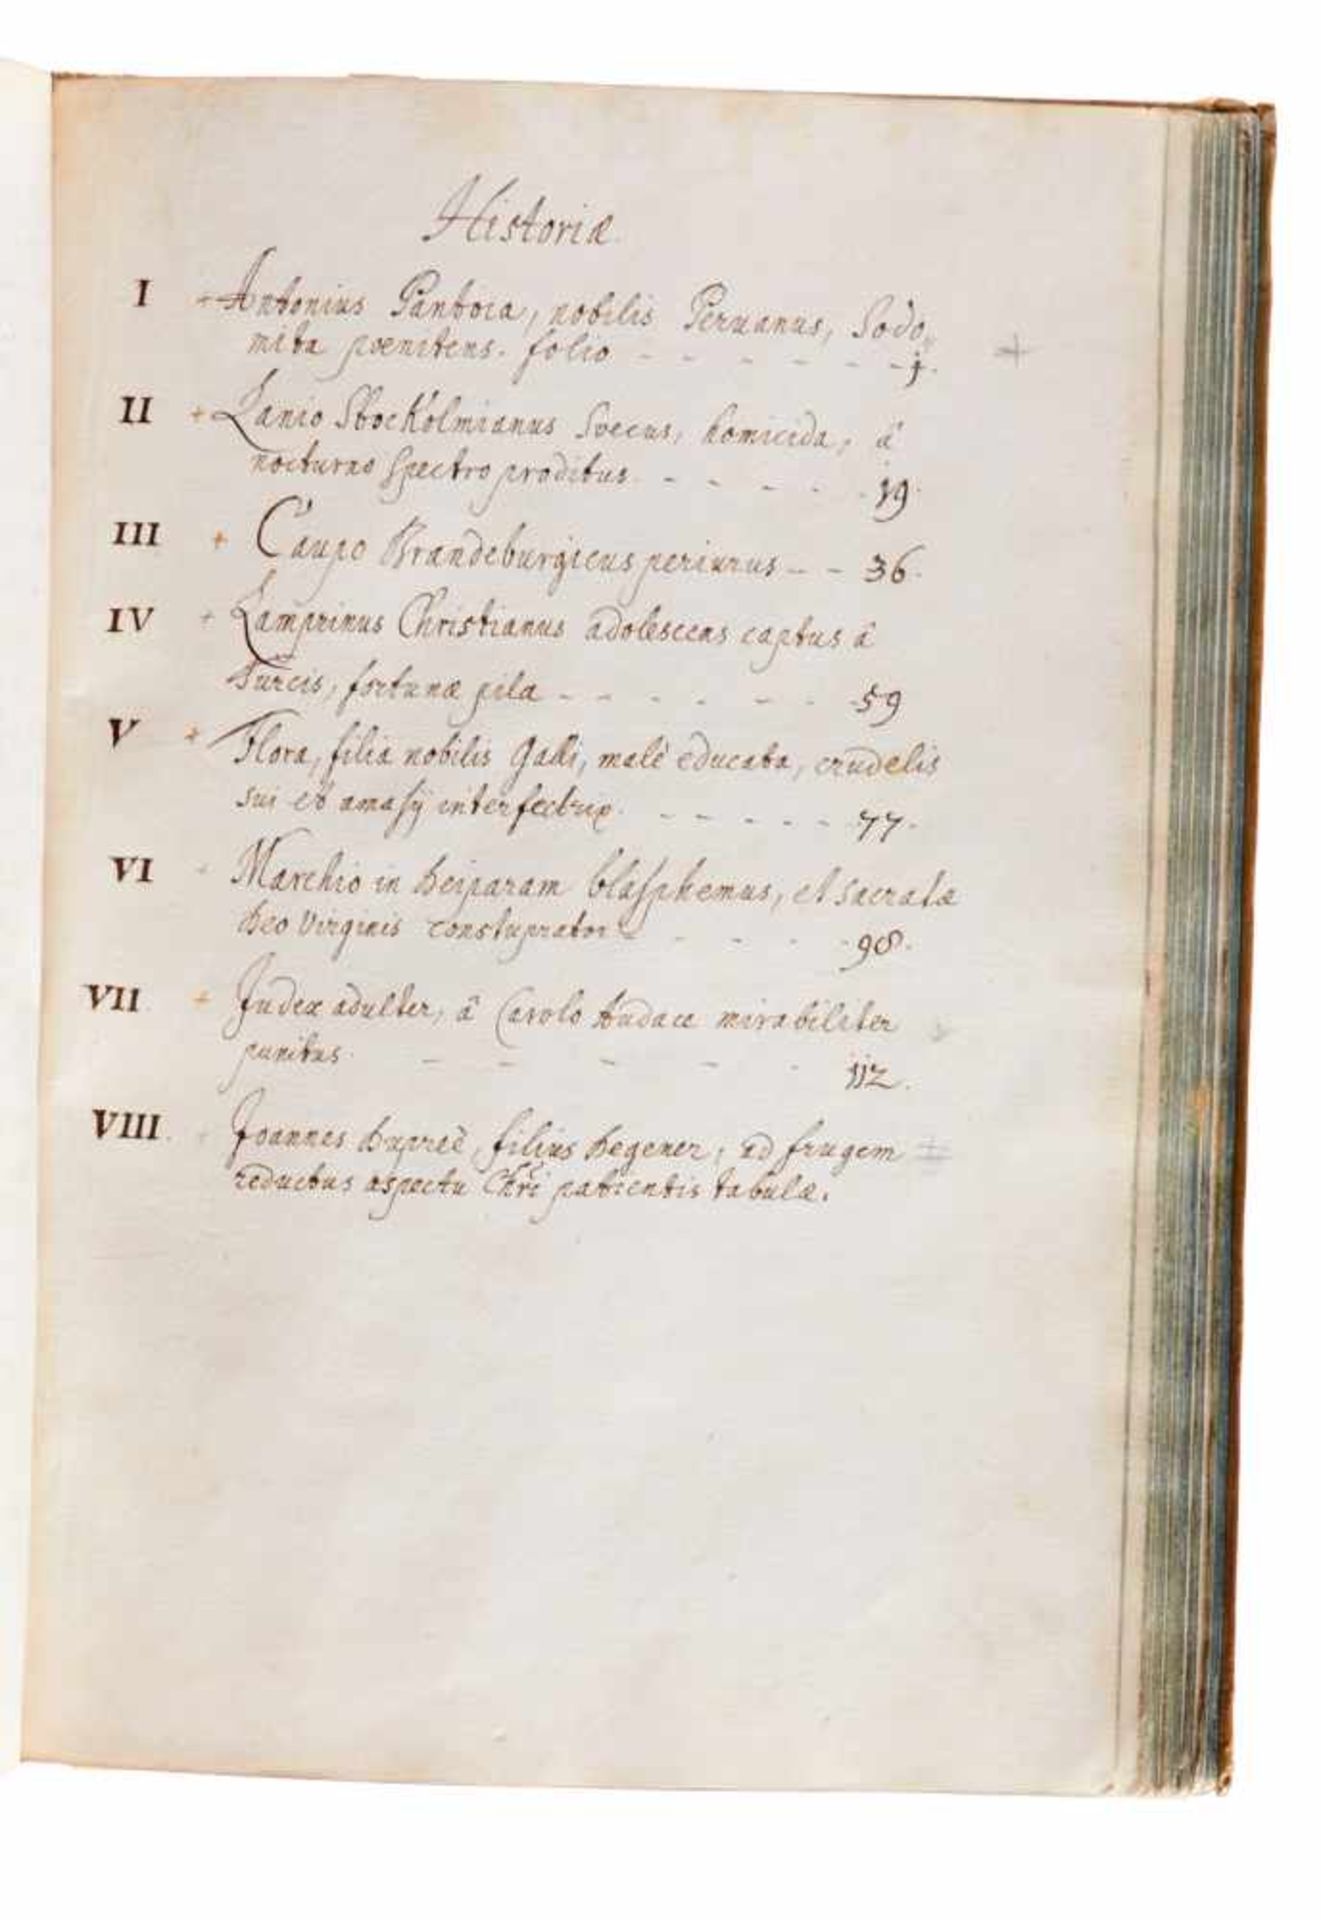 Historiæ
I + Antonius Pantoia, nobilis Peruanus, Sodo„
mita pœnitens. folio - - - - - - j. +
II + Lanio Stockolmianus Svecus, homicida, â
nocturno spectro proditus - - - - - 19.
III + Caupo Brandeburgicus periurus - - 36.
IV + Lamprinus Christianus adolescens captus â
Turcis, fortunæ pila - - - - - - 59
V + Flora, filia nobilis Galli, malè educata, crudelis
sui et amasij interfectrix. - - - - - - 77.
VI + Marchio in Deiparam blasphemus, et sacratæ
Deo Virginis constuprator - - - - - 98.
VII + Judex adulter, â Carolo Audace mirabiliter
punitus. - - - - - 112.
VIII + Joannes Dupreè, filius degener, ad frugem
reductus aspectu Chri patientis tabulæ.